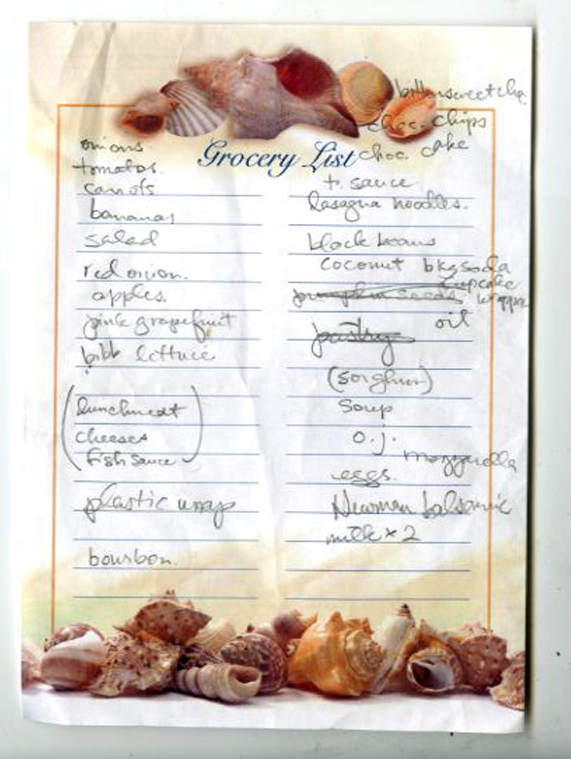 bittersweet cho
choc. chips
choc. cake
Grocery List
onions
tomatos.
carrots
bananas
salad
red onion.
apples.
pink grapefruit
bibb lettuce
(lunchmeat
cheeses
fish sauce)
plastic wrap
bourbon.
t. sauce
lasagna noodles.
black beans
coconut bkg soda
cupcake
pumpkin seeds wrapper
oil
pastry
(sorghum)
soup
o.j.
mozzarella
eggs.
Newman balsamic
milk x 2